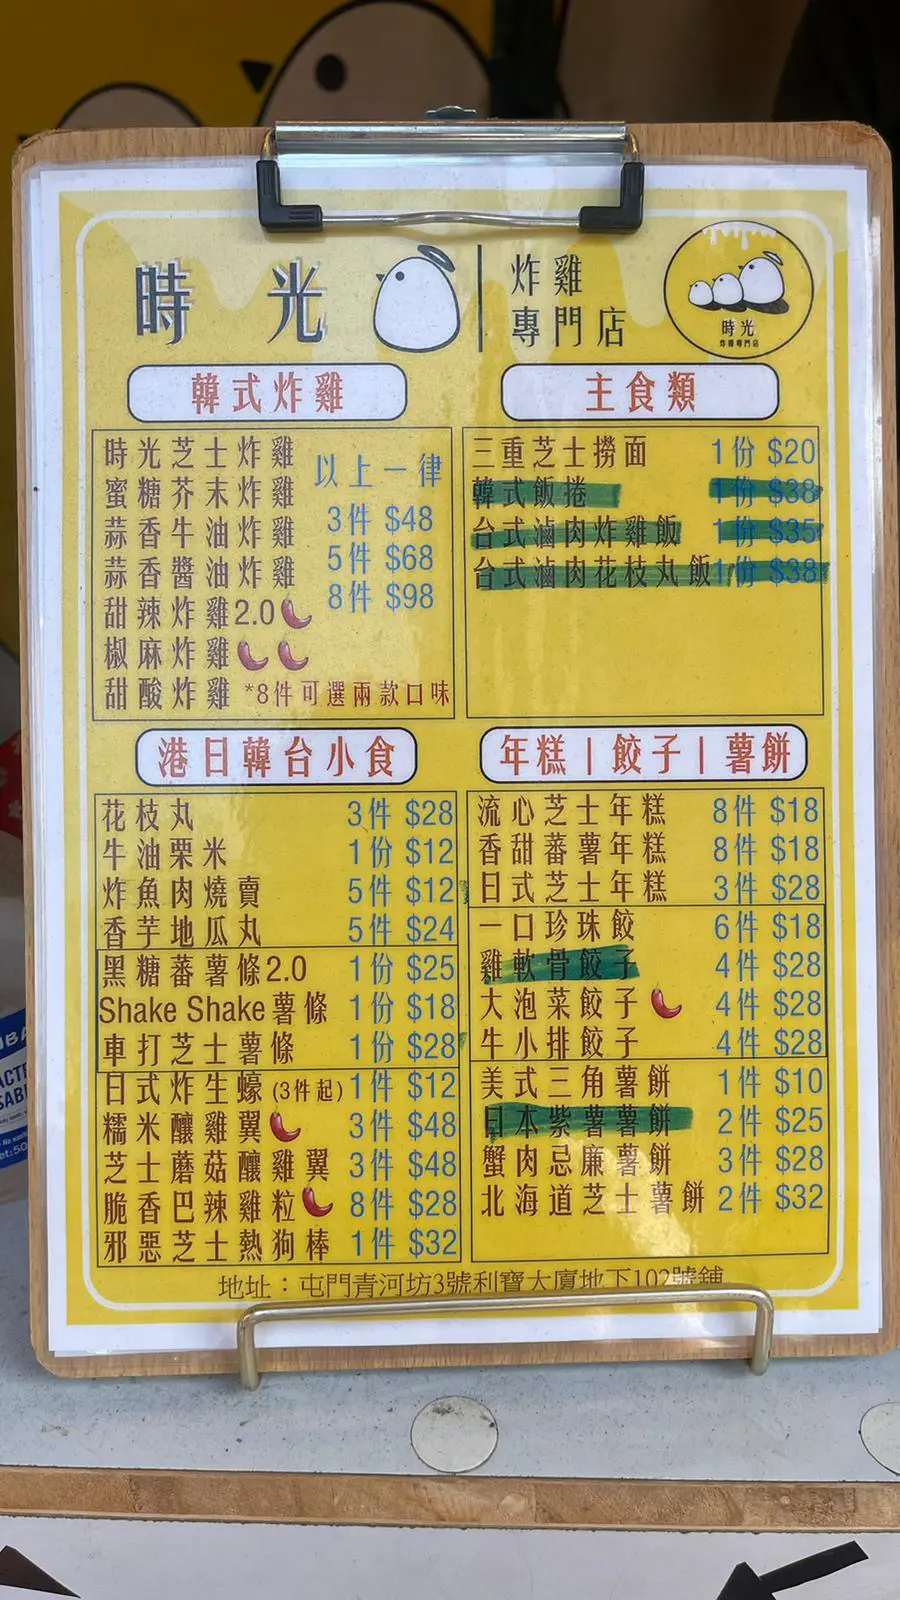 時光
炸雞
專門店
時光
炸雞專門店
韓式炸雞
時光芝士炸雞
蜜糖芥末炸雞
蒜香牛油炸雞
蒜香醬油炸雞
甜辣炸雞2.0
椒麻炸雞
甜酸炸雞 *8件可選兩款口味
以上一律
3件 $48
5件 $68
8件 $98
主食類
三重芝士撈面 1份 $20
韓式飯捲 1份 $38
台式滷肉炸雞飯 1份 $35
台式滷肉花枝丸飯 1份 $38
港日韓台小食
花枝丸 3件 $28
牛油栗米 1份 $12
炸魚肉燒賣 5件 $12
香芋地瓜丸 5件 $24
黑糖蕃薯條2.0 1份 $25
Shake Shake薯條 1份 $18
車打芝士薯條 1份 $28
日式炸生蠔(3件起) 1件 $12
糯米釀雞翼 3件 $48
芝士蘑菇釀雞翼 3件 $48
脆香巴辣雞粒 8件 $28
邪惡芝士熱狗棒 1件 $32
年糕|餃子|薯餅
流心芝士年糕 8件 $18
香甜蕃薯年糕 8件 $18
日式芝士年糕 3件 $28
一口珍珠餃 6件 $18
雞軟骨餃子 4件 $28
大泡菜餃子 4件 $28
牛小排餃子 4件 $28
美式三角薯餅 1件 $10
日本紫薯薯餅 2件 $25
蟹肉忌廉薯餅 3件 $28
北海道芝士薯餅 2件 $32
地址：屯門青河坊3號利寶大廈地下102號鋪